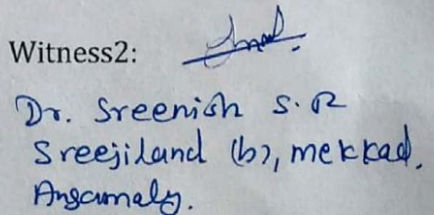 Witness2:
Dr. Sreenish S. R
Sreejiland (b), mekkad,
Angamaly.